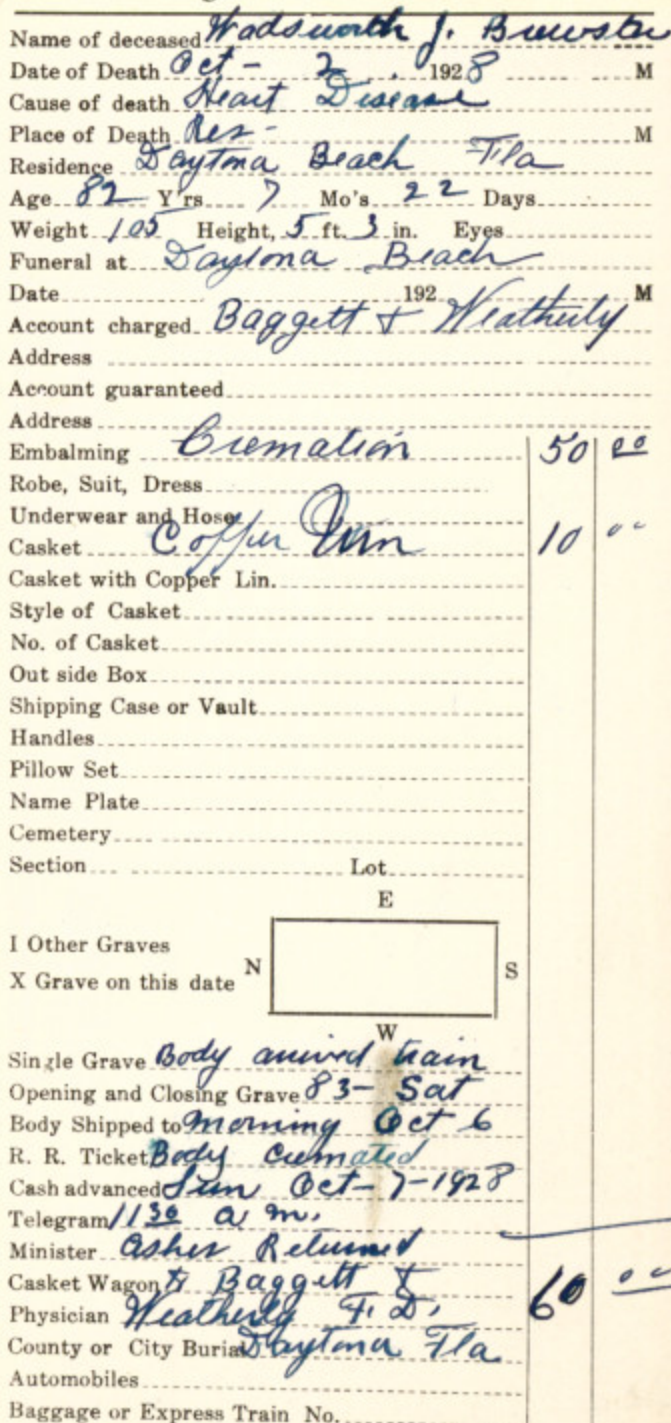 Name of deceased Wadsworth J. Brewster
Date of Death Oct - 2. 1928 M
Cause of death Heart Disease
Place of Death Res - M
Residence Daytona Beach Fla
Age 82 Y'rs 7 Mo's 22 Days
Weight 105 Height, 5 ft. 3 in. Eyes
Funeral at Daytona Beach
Date 192 M
Account charged Baggett & Weatherly
Address
Account guaranteed
Address
Embalming Cremation 50 00
Robe, Suit, Dress
Underwear and Hose
Casket Copper Urn 10 00
Casket with Copper Lin.
Style of Casket
No. of Casket
Out side Box
Shipping Case or Vault
Handles
Pillow Set
Name Plate
Cemetery
Section Lot
E
I Other Graves
X Grave on this date N S
W
Single Grave Body arrived train
Opening and Closing Grave 83 - Sat
Body Shipped to Morning Oct 6
R. R. Ticket Body cremated
Cash advanced Sun Oct - 7 - 1928
Telegram 11 30 a m.
Minister Ashes Returned
Casket Wagon to Baggett &
Physician Weatherly F. D. 60 00
County or City Burial Daytona Fla
Automobiles
Baggage or Express Train No.